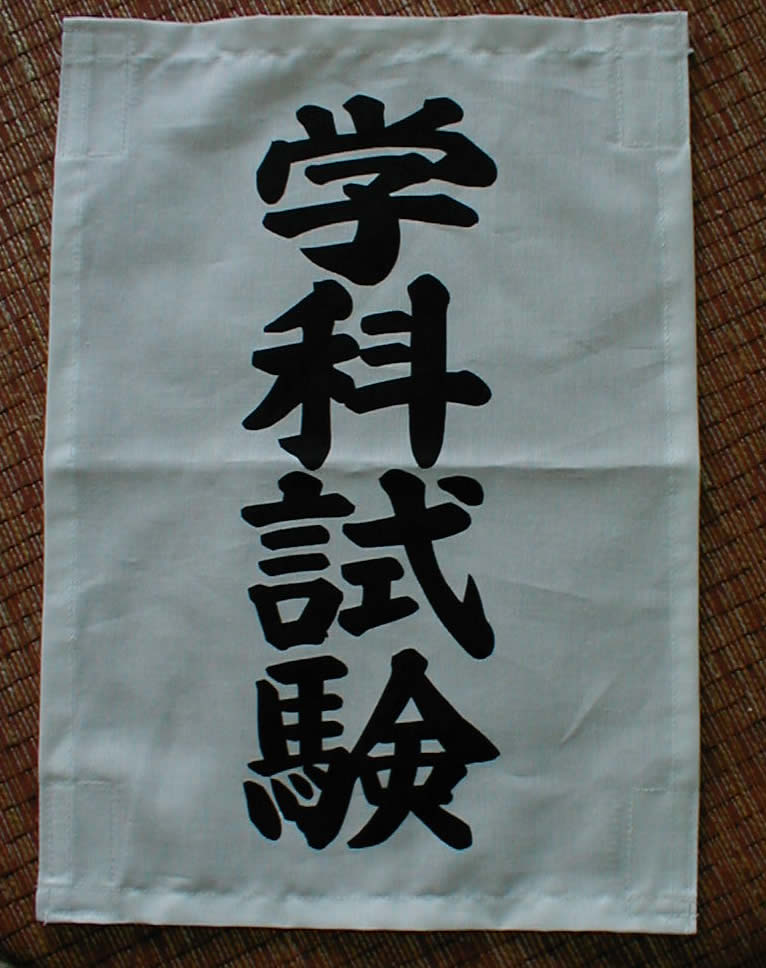 学科試験